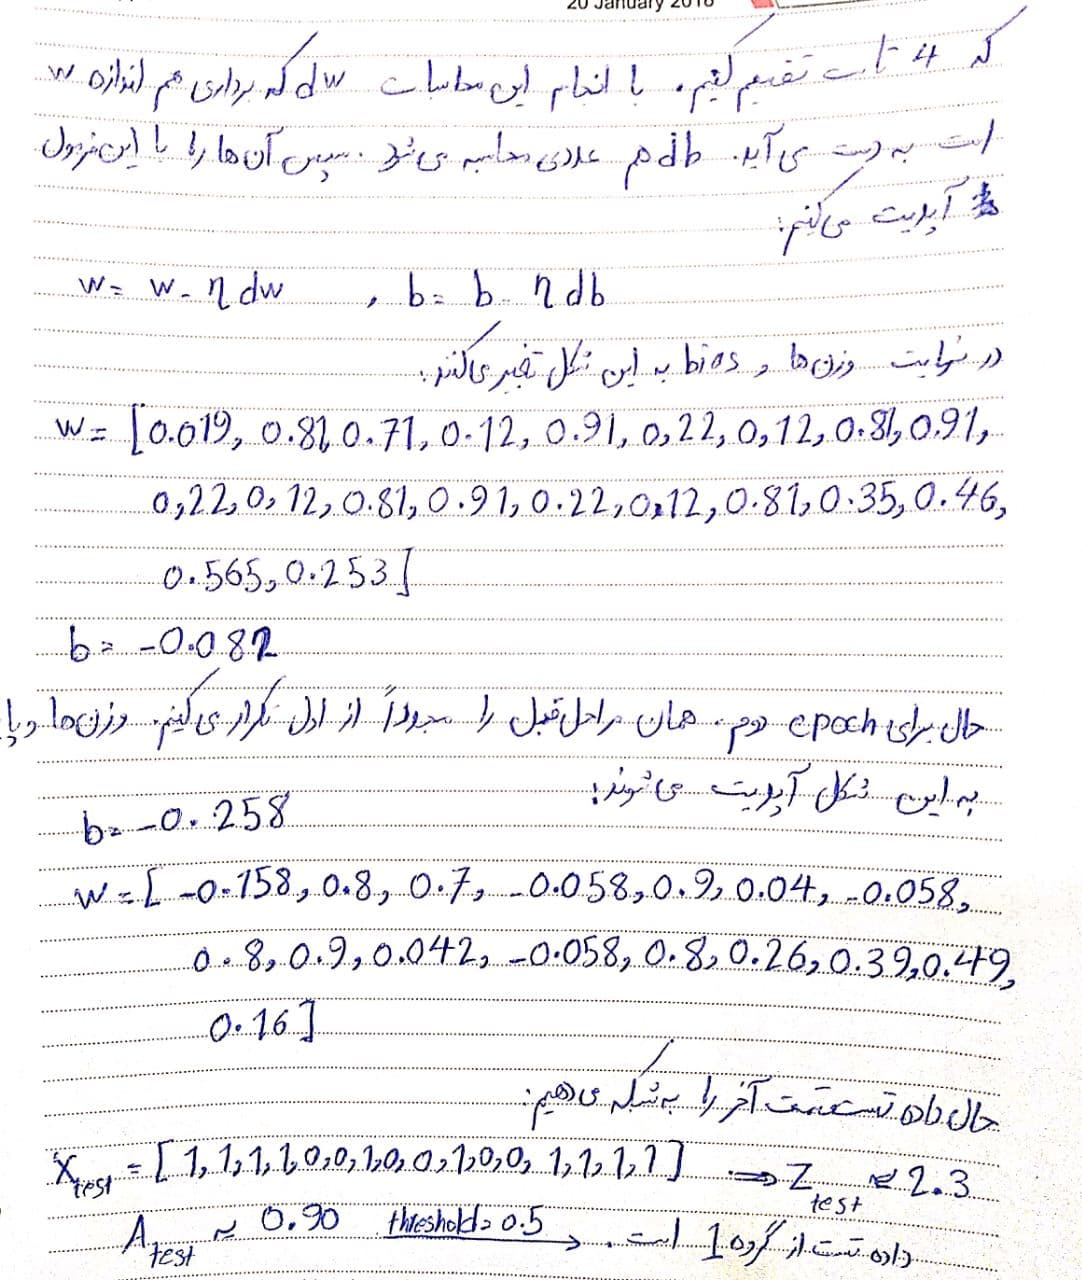 20 January 2018
که 4 تاست تقسیم کنیم. با انجام این محاسبات dw که برداری هم اندازه w
است به دست می‌آید. db هم عددی محاسبه می‌شود. سپس آن‌ها را با این فرمول
آپدیت می‌کنیم:
w = w - η dw , b = b - η db
در نهایت وزن‌ها و bios به این شکل تغییر می‌کنند:
w = [0.019, 0.81, 0.71, 0.12, 0.91, 0,22, 0,12, 0.81, 0.91,
0,22, 0,12, 0.81, 0.91, 0.22, 0,12, 0.81, 0.35, 0.46,
0.565, 0.253]
b = -0.082
حال برای epoch دوم. همان مراحل قبل را مجدداً از اول تکرار می‌کنیم. وزن‌ها و
به این شکل آپدیت می‌شوند:
b = -0.258
w = [ -0.158, 0.8, 0.7, -0.058, 0.9, 0.04, -0.058,
0.8, 0.9, 0.042, -0.058, 0.8, 0.26, 0.39, 0.49,
0.16]
حال داده تست قسمت آخر را به شبکه می‌دهیم:
Xtest = [1, 1, 1, 1, 0, 0, 1, 0, 0, 1, 0, 0, 1, 1, 1, 1] ⇒ Ztest ≈ 2.3
Atest ≈ 0.90 threshold = 0.5 → داده تست از گروه 1 است.